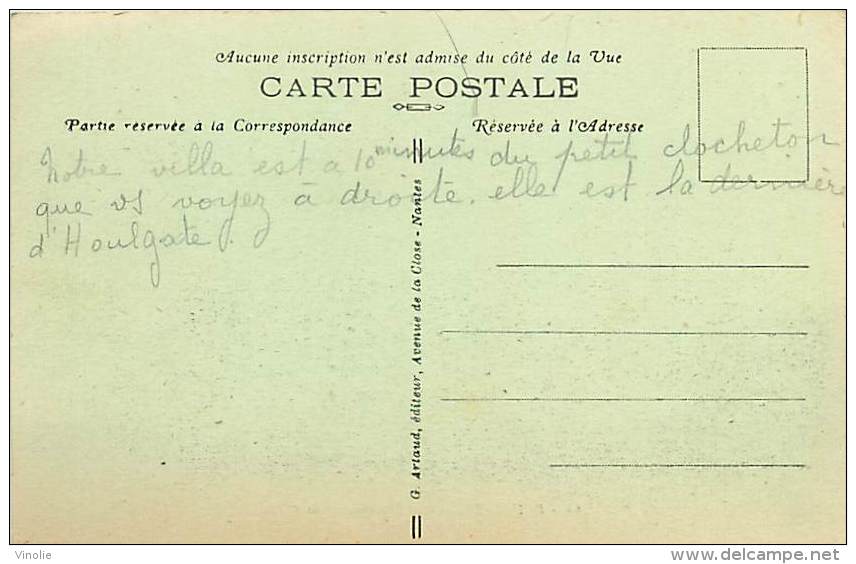 Aucune inscription n'est admise du côté de la Vue
CARTE POSTALE
Partie réservée à la Correspondance
Réservée à l'Adresse
Notre villa est à 10 minutes du petit clocheton
que vs voyez à droite. elle est la dernière
d'Houlgate.
G. Artaud, éditeur, Avenue de la Close - Nantes
Vinolie
www.delcampe.net